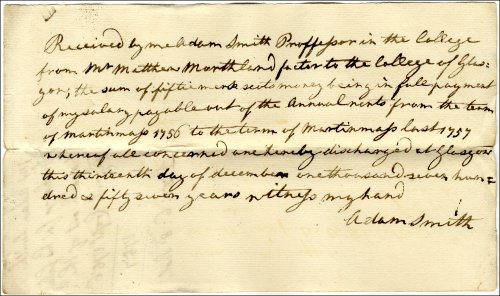 Received by me Adam Smith Proffessor in the College
from Mr Matthew Morthland factor to the College of Glas=
gow; the sum of fiftie merk scots money being in full payment
of my salary payable out of the Annual rents from the term
of martinmass 1756 to the term of Martinmass last 1757
whereof all concerned are hereby discharged at Glasgow
this thirteenth day of december one thousand seven hun=
dred & fifty seven years witness my hand
Adam Smith